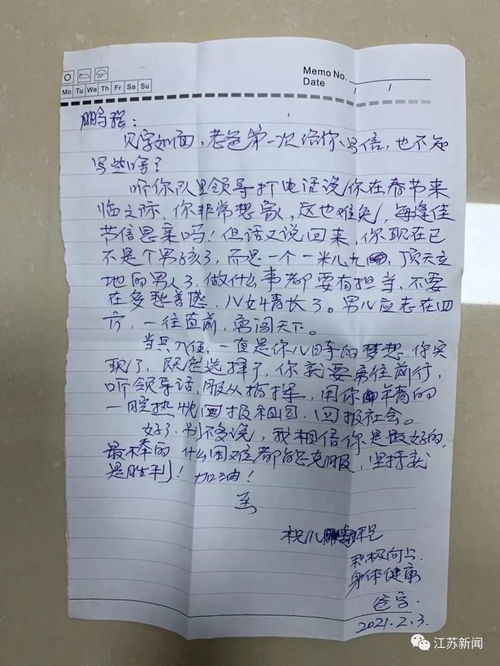 Memo No.
Mo Tu We Th Fr Sa Su
Date / /
鹏程：
见字如面，老爸第一次给你写信，也不知
写些啥？
听你队里领导打电话说你在春节来
临之际，你非常想家，这也难免，每逢佳
节倍思亲吗！但话又说回来，你现在已
不是个男孩了，而是一个一米八九，顶天立
地的男人了，做什么事都要有担当，不要
在多愁善感，儿女情长了。男儿应志在四
方，一往直前，勇闯天下。
当兵入伍，一直是你儿时的梦想，你实
现了，既然选择了，你就要勇往前行，
听领导话，服从指挥，用你年青的
一腔热忱回报祖国，回报社会。
好了，别不多说，我相信你是最好的，
最棒的，什么困难都能克服，坚持就
是胜利！加油！
祝儿
积极向上
身体健康
爸字
2021.2.3.
江苏新闻